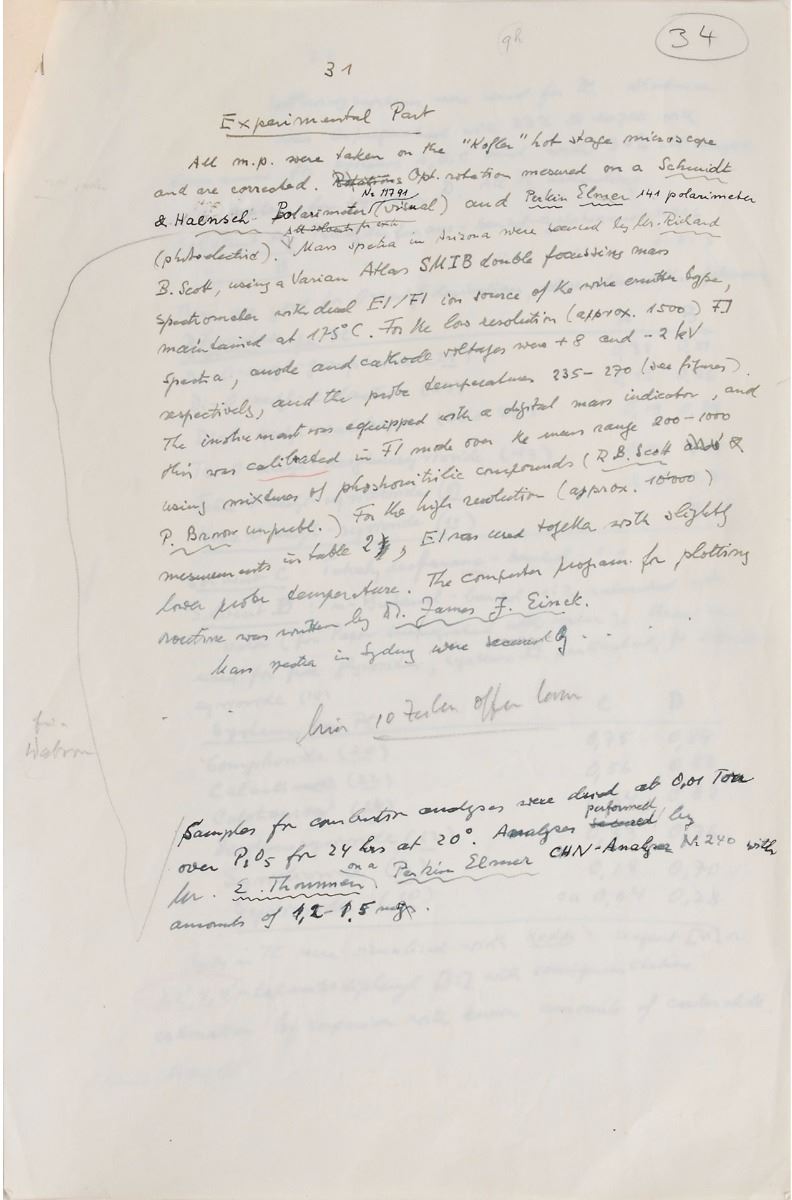 34
31
Experimental Part
All m.p. were taken on the "Kofler" hot stage microscope
and are corrected. Rotations Opt. rotation mesured on a Schmidt
No 11791
& Haensch Polarimeter (visual) and Perkin Elmer 141 polarimeter
All solvents for
(photoelectric). Mass spectra in Arizona were secured by Mr. Richard
B. Scott, using a Varian Atlas SM1B double focussing mass
spectrometer with dual EI/FI ion source of the wire emitter type,
maintained at 175°C. For the low resolution (approx. 1500) FI
spectra, anode and cathode voltages were +8 and -2 kV
respectively, and the probe temperatures 235-270 (see figures).
The instrument was equipped with a digital mass indicator, and
this was calibrated in FI mode over the mass range 200-1000
using mixtures of phosphonitrilic compounds (R.B. Scott and &
P. Brown unpubl.) For the high resolution (approx. 10'000)
mesurements in table 2, EI was used together with slightly
lower probe temperature. The computer program for plotting
routine was written by Dr. James F. Elnck.
Mass spectra in Sydney were secured by . . . .
hier 10 Zeilen offen lassen
for
Watson
Samples for combustion analyses were dried at 0,01 Torr
performed
over P2O5 for 24 hrs at 20°. Analyses secured by
on a
Mr. E. Thommen Perkin Elmer CHN-Analyser N. 240 with
amounts of 1,2-1,5 mgs.